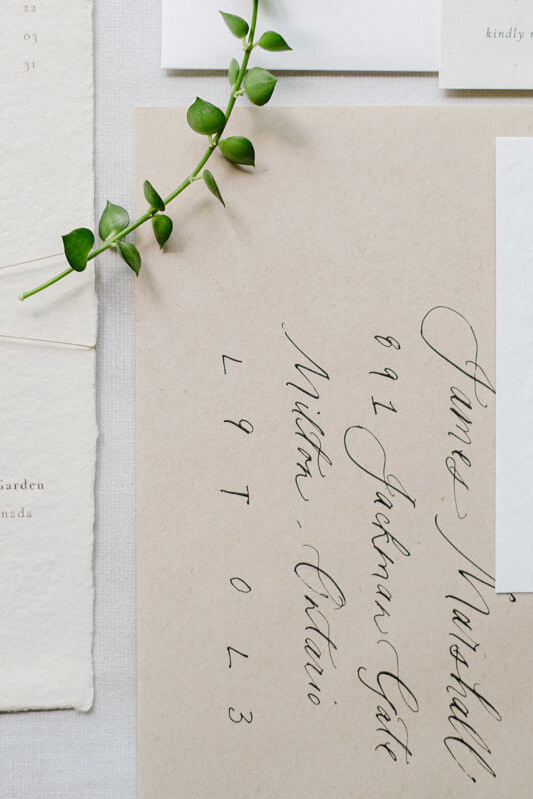 22
03
31
Garden
nada
kindly
James Marshall
891 Jackman Gate
Milton, Ontario
L9T 0L3